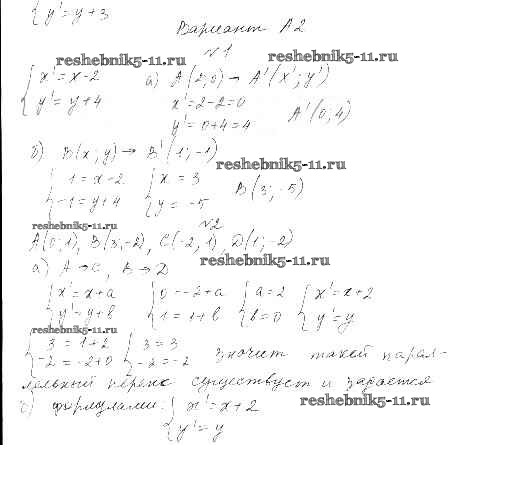 { y' = y + 3
Вариант А2
№1
reshebnik5-11.ru reshebnik5-11.ru
{ x' = x - 2 а) A(2; 0) → A'(x'; y')
{ y' = y + 4 x' = 2 - 2 = 0
y' = 0 + 4 = 4 A'(0; 4)
б) B(x; y) → B'(1; -1)
reshebnik5-11.ru
{ 1 = x - 2 { x = 3 B(3; -5)
{ -1 = y + 4 { y = -5
reshebnik5-11.ru №2
A(0; 1), B(3; -2), C(-2, 1), D(1; -2)
reshebnik5-11.ru
а) A → C, B → D
{ x' = x + a { 0 = -2 + a { a = 2 { x' = x + 2
{ y' = y + b { 1 = 1 + b { b = 0 { y' = y
reshebnik5-11.ru
{ 3 = 1 + 2 { 3 = 3
{ -2 = -2 + 0 { -2 = -2 значит такой парал-
лельный перенос существует и задается
формулами: { x' = x + 2 reshebnik5-11.ru
{ y' = y